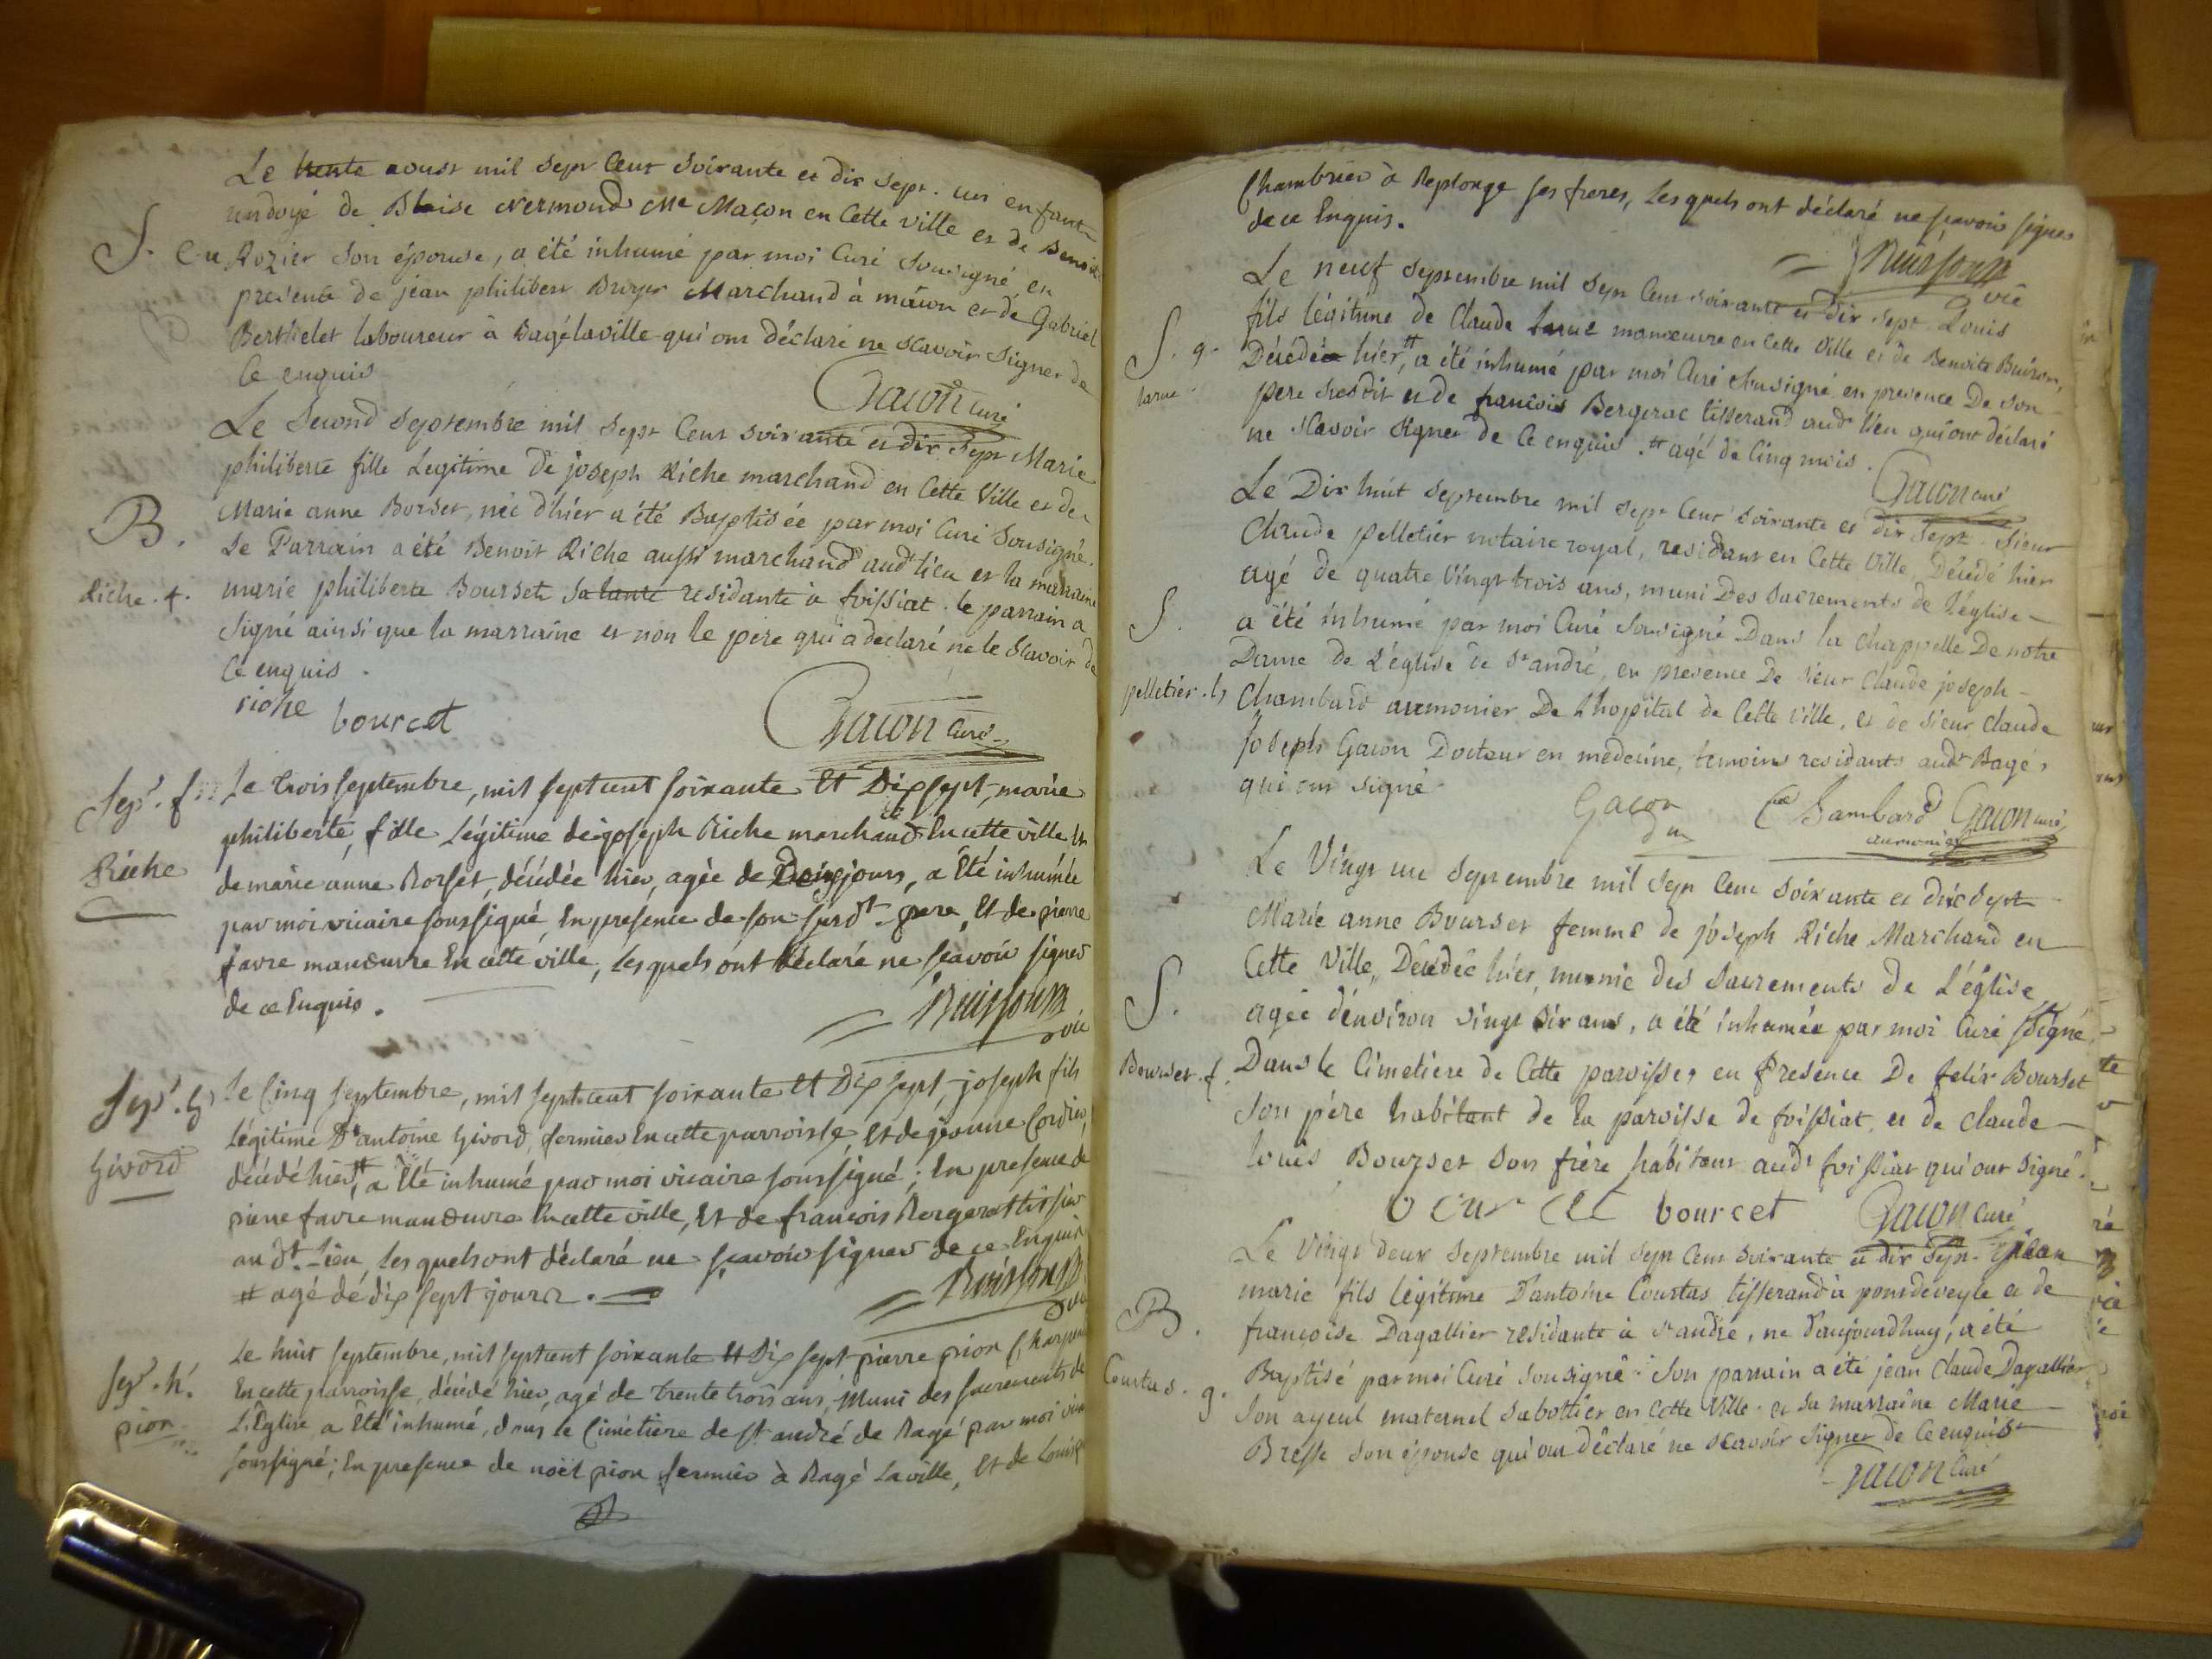 Le trente aoust mil sept Cent soixante et dix sept. un enfant
undoyé de Blaise Nermond Me Maçon en Cette ville et de Benoite
S. Rozier son épouse, a été inhumé par moi Curé sousigné en
presence de jean philibert Buyer Marchand à mâcon et de Gabriel
Berthelet laboureur à Bagélaville qui ont déclaré ne scavoir signer de
Ce enquis
Gacon Curé
Le second septembre mil sept Cent soixante et dix sept Marie
philiberte fille Legitime de joseph Riche marchand en Cette Ville et de
Marie anne Borset, née d'hier a été Baptisée par moi Curé Sousigné.
B.
Le Parrain a été Benoit Riche aussi marchand audt lieu et la marraine
Riche. f. marie philiberte Bourset sa tante residante à foissiat. le parrain a
signé ainsi que la marraine et non le pere qui a declaré ne le scavoir de
Ce enquis.
riche bourcet
Gacon Curé
Sepr. f. Le trois septembre, mil sept cent soixante Et Dix sept, marie
philiberte, fille Légitime de joseph Riche marchand En cette ville Et
Riche de marie anne Borset, décédée hier, agée de Deux jours, a Eté inhumée
par moi vicaire soussigné En presence de son susdt pere, Et de pierre
favre manœuvre En cette ville, les quels ont déclaré ne sçavoir signer
de ce Enquis.
Buisson
vic
Sepr. g Le Cinq septembre, mil sept cent soixante Et Dix sept, joseph fils
Légitime D'antoine Givord, fermier En cette parroisse, Et de jeanne Cordier,
Givord décédé hier, # a Eté inhumé par moi vicaire soussigné; En presence de
pierre favre manœuvre En cette ville, Et de francois Bergerat tissier
au dt. Lieu, les quels ont déclaré ne sçavoir signer de ce Enquis
# agé de dix sept jours.
Buisson
vic
Le huit septembre, mil sept cent soixante Et Dix sept pierre pion
Sepr. h. En cette parroisse, décédé hier, agé de trente trois ans, Muni des sacrements de
pion L'Eglise a Eté inhumé, dans le Cimétiere de st andré de Bagé par moi vicaire
soussigné; En presence de noël pion fermier à Bagé Laville, Et de Louis
Chambrier à Replonge ses freres, Les quels ont déclaré ne sçavoir signer
de ce Enquis.
Buisson
vic
Le neuf septembre mil sept Cent soixante et dix sept Louis
fils légitime de Claude larue manœuvre en Cette Ville et de Benoite Buiron,
S. g. Décédé hier, # a été inhumé par moi Curé Sousigné en presence De son
larue. pere susdit et de francois Bergerac tisserand audt lieu qui ont déclaré
ne scavoir signer de Ce enquis. # agé de Cinq mois.
Gacon curé
Le Dix huit septembre mil sept Cent soixante et dix sept. Sieur
Claude pelletier notaire royal, residant en Cette Ville, Décédé hier
agé de quatre Vingt trois ans, muni Des sacrements de L'église
S. a été inhumé par moi Curé Sousigné Dans la Chappelle De notre
Dame de L'église de st andré, en presence De sieur Claude joseph
pelletier. h Chambard aumonier De L'hopital de Cette Ville, et de sieur Claude
joseph Gacon Docteur en medecine, temoins residants audt Bagé,
qui ont signé.
Gacon
dm
Chambard
aumonier
Gacon curé
Le Vingt un septembre mil sept Cent soixante et dix sept
Marie anne Bourset femme de joseph Riche Marchand en
Cette Ville, Décédée hier, munie des sacrements de L'église
S. agée d'environ vingt six ans, a été inhumée par moi Curé sousigné
Bourset. f. Dans le Cimetiere de Cette paroisse, en Presence De felix Bourset
son pére habitant de la paroisse de foissiat, et de Claude
louis Bourset son frére habitant audt foissiat qui ont signé.
bourcet bourcet Gacon Curé
Le Vingt deux septembre mil sept Cent soixante et dix sept. jean
marie fils légitime D'antoine Courtas tisserand à pondeveyle et de
B. françoise Dagallier residante à st andré, né d'aujourdhuy, a été
Courtas. g. Baptisé par moi Curé Sousigné. Son parrain a été jean Claude Dagallier
son ayeul maternel sabottier en Cette Ville et sa marraine Marie
Bresse son épouse qui ont déclaré ne scavoir signer de Ce enquis
Gacon Curé